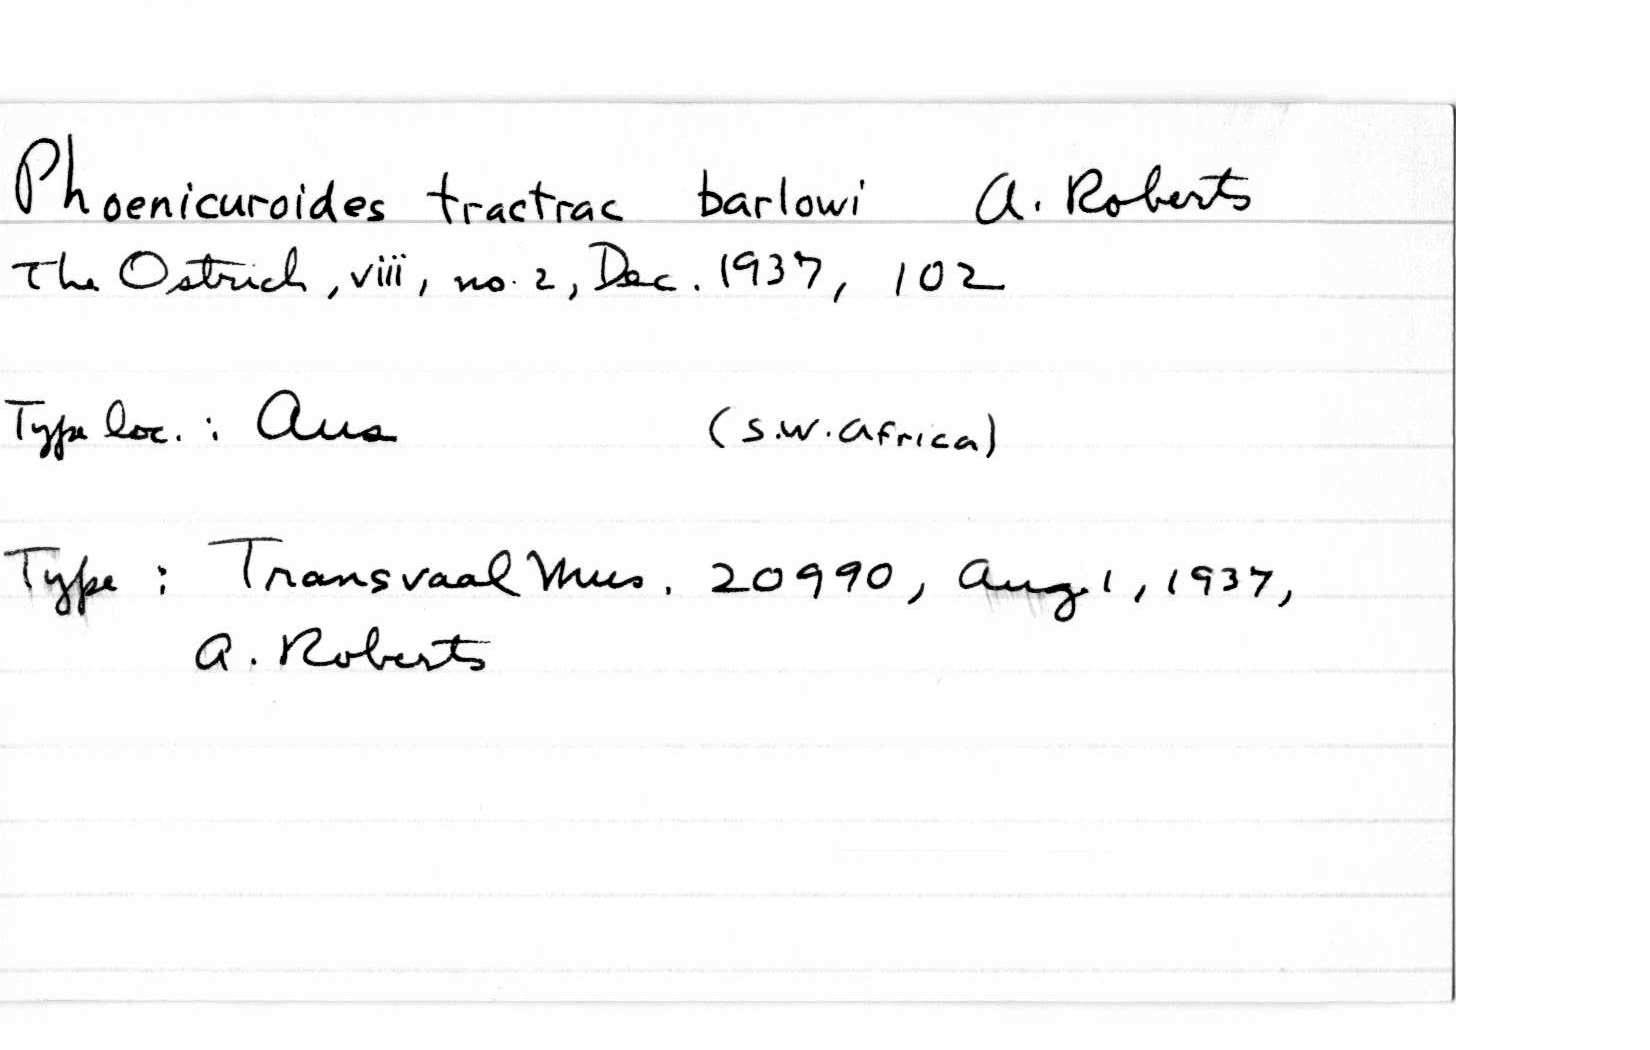 Phoenicuroides tractrac barlowi A. Roberts
The Ostrich, viii, no. 2, Dec. 1937, 102
Type loc. : Aus (S.W. Africa)
Type : Transvaal Mus. 20990, Aug. 1, 1937,
A. Roberts